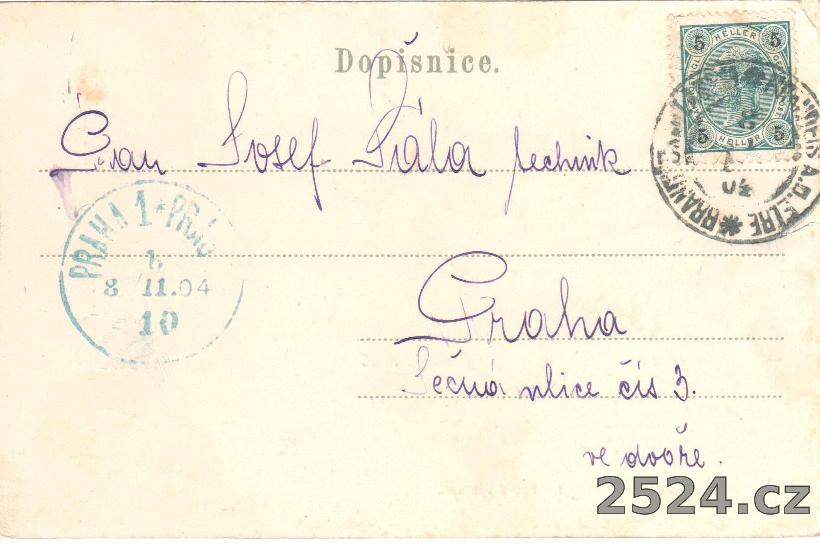 Dopisnice.
5 HELLER 5
5 HELLER 5
BRANDEIS A.D. ELBE
Pan Josef Fiála technik
PRAHA 1 * PRAG
8 II.04
10
Praha
Ječná ulice čís 3.
ve dvoře.
2524.cz